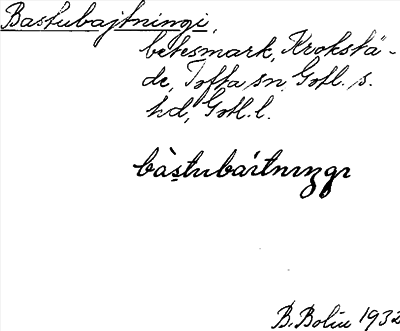 Bastubajtningi,
betesmark, Krokstä-
de, Tofta sn, Gotl. s.
hd, Gotl. l.
bàstubaítnıŋgı
B. Bolin 1932